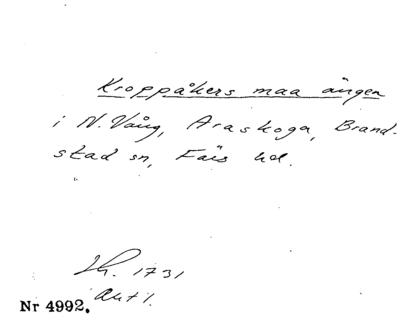 Kroppåkers maa ängen
i N. Vång, Araskoga, Brand-
stad sn, Färs hd.
Lh. 1731
Akt 1.
Nr 4992.